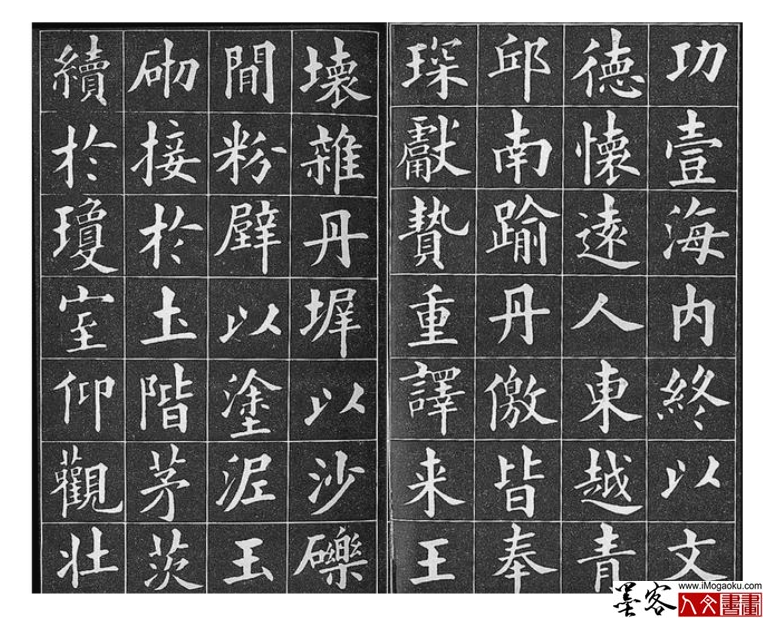 功壹海内終以文
德懷遠人東越青
邱南踰丹儌皆奉
琛獻贄重譯来王
壞雜丹墀以沙礫
閒粉壁以塗泥玉
砌接於土階茅茨
續於瓊室仰觀壯
墨客
www.iMogaoku.com
人文書畫